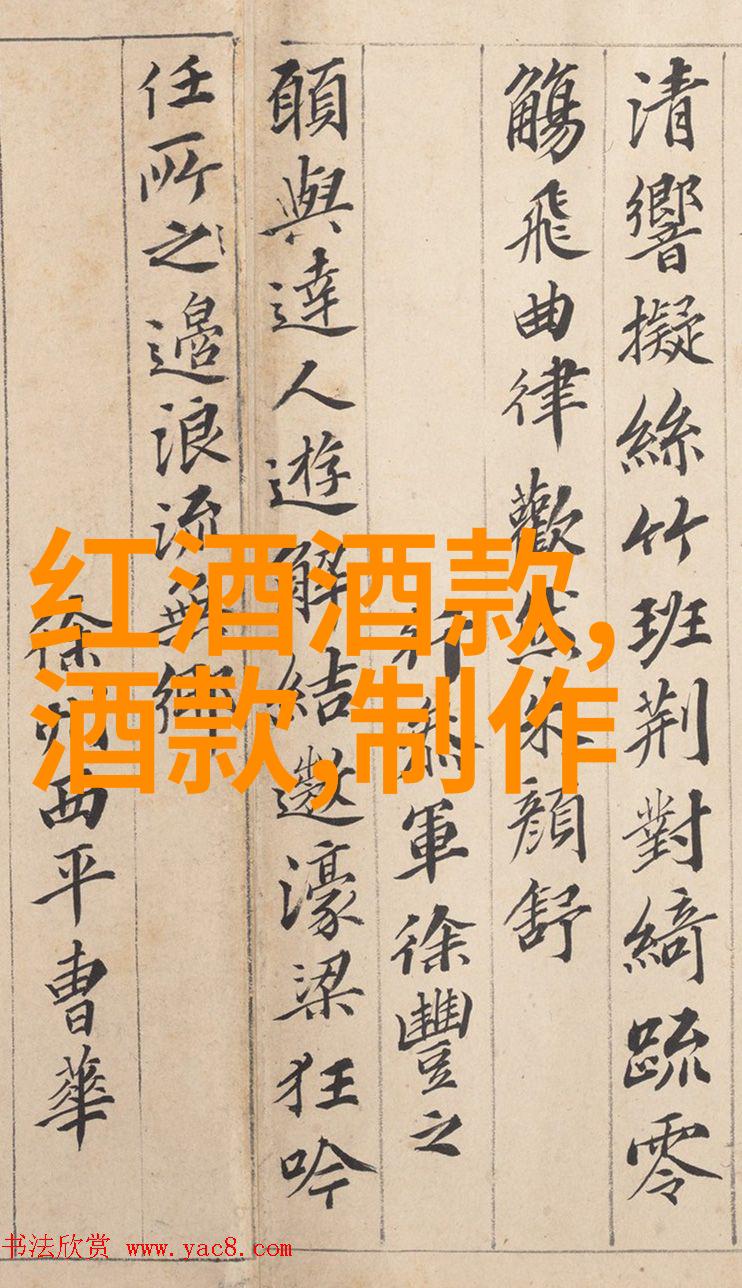 清響擬絲竹班荆對綺疏零
觴飛曲律歡然朱顏舒
行參軍徐豐之
願與達人遊解結遨濠梁狂吟
任所之邉浪流無鄉
徐州西平曹華
红酒酒款,
酒款,制作
书法欣赏 www.yac8.com